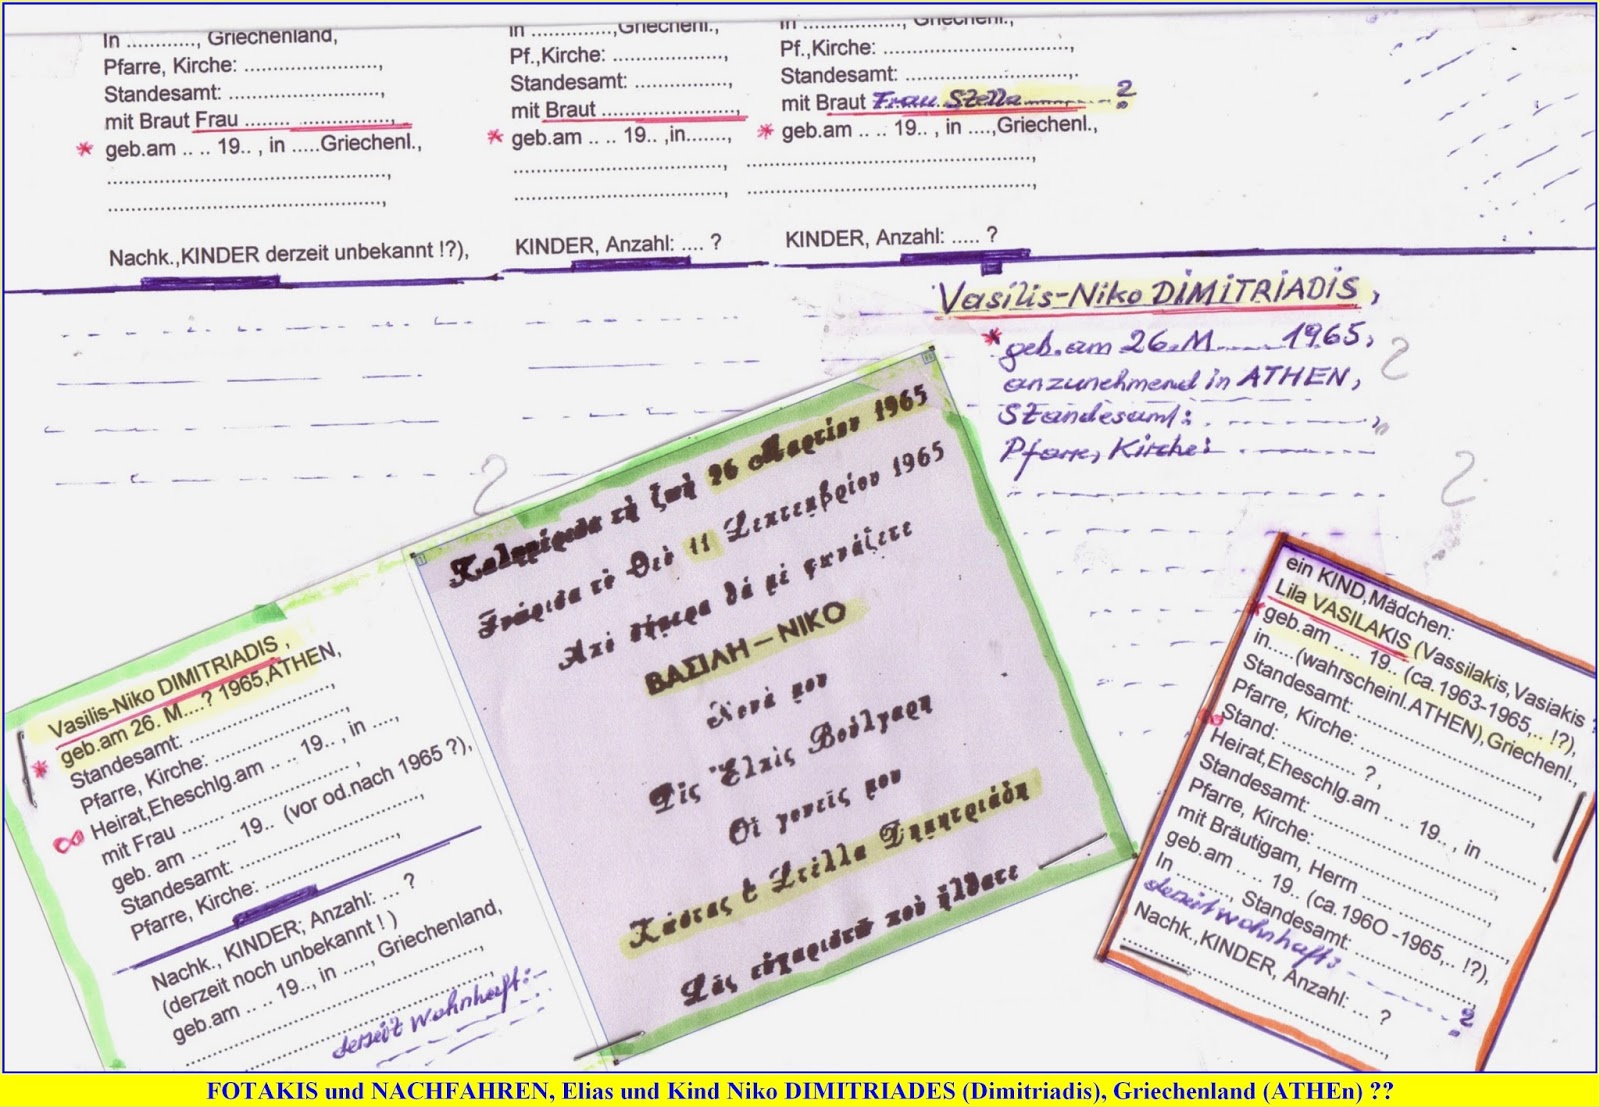 In ............, Griechenland,
Pfarre, Kirche: .......................,
Standesamt: ..........................,
mit Braut Frau ........ .................,
* geb.am .. .. 19.. , in .....Griechenl.,
Nachk.,KINDER derzeit unbekannt !?),
In ..............,Griechenl.,
Pf.,Kirche: .......................,
Standesamt: ..................,
mit Braut ........................,
* geb.am .. .. 19.. ,in.......,
KINDER, Anzahl: .... ?
In .............., Griechenl.,
Pf.,Kirche: ................................,
Standesamt: ............................,.
mit Braut Frau Stella ........ ?
* geb.am .. .. 19.. , in ....,Griechenl.,
KINDER, Anzahl: ..... ?
Vasilis-Niko DIMITRIADIS,
* geb.am 26.M........1965,
anzunehmend in ATHEN,
Standesamt:
Pfarre, Kirche:
Vasilis-Niko DIMITRIADIS ,
geb.am 26. M....? 1965,ATHEN,
* Standesamt: ..........................,
Pfarre, Kirche: ..........................,
Heirat,Eheschlg.am .. .. 19.. , in ....,
mit Frau ........ ..........................,
geb. am .. .... 19.. (vor od.nach 1965 ?),
Standesamt: ..........................,
Pfarre, Kirche: ..........................,
Nachk., KINDER; Anzahl: .... ?
(derzeit noch unbekannt ! )
geb.am .. .. 19.., in ...., Griechenland,
derzeit wohnhaft:
Καλημέρισα τὴ ζωὴ 26 Μαρτίου 1965
Γνώρισα τὸ Θεὸ 11 Σεπτεμβρίου 1965
Ἀπὸ σήμερα θὰ μὲ φωνάζετε
ΒΑΣΙΛΗ – ΝΙΚΟ
Νονά μου
Δὶς Ἐλπὶς Βούλγαρη
Οἱ γονεῖς μου
Κώστας & Στέλλα Δημητριάδη
Σᾶς εὐχαριστῶ ποὺ ἤλθατε
ein KIND,Mädchen:
Lila VASILAKIS (Vassilakis,Vasiakis ?
* geb.am .. .. 19.. (ca.1963-1965,.. !?),
in....(wahrscheinl.ATHEN),Griechenl.,
Standesamt: ..........................,
Pfarre, Kirche: ..........................,
Stand: ............ ?
Heirat,Eheschlg.am .. .. 19.. , in ......,
Standesamt: ..........................,
Pfarre, Kirche: ..........................,
mit Bräutigam, Herrn ..................,
geb.am .. .... 19.. (ca.1960 -1965,.. !?),
In ........, Standesamt: ................,
derzeit wohnhaft: ?
Nachk.,KINDER, Anzahl: ... ?
FOTAKIS und NACHFAHREN, Elias und Kind Niko DIMITRIADES (Dimitriadis), Griechenland (ATHEn) ??